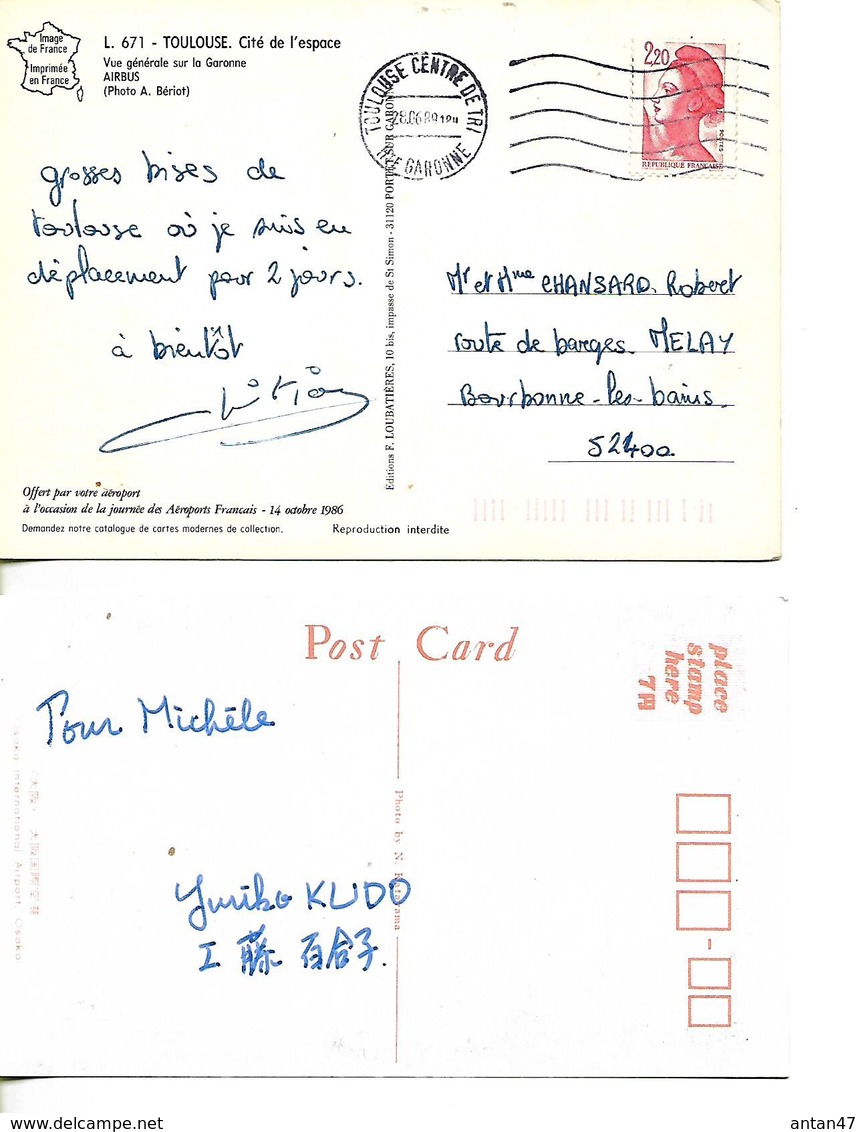 Image
de France
Imprimée
en France
L. 671 - TOULOUSE. Cité de l'espace
Vue générale sur la Garonne
AIRBUS
(Photo A. Bériot)
TOULOUSE CENTRE DE TRI
HTE GARONNE
2,20
POSTES
REPUBLIQUE FRANÇAISE
grosses bises de
toulouse où je suis en
déplacement pour 2 jours.
à bientôt
Mr et Mme CHANSARD. Robert
route de barges. MELAY
Bourbonne-les-bains.
52400
Editions F. LOUBATIÈRES, 10 bis, impasse de St Simon - 31120 PORTET SUR GARONNE
Offert par votre aéroport
à l'occasion de la journée des Aéroports Français - 14 octobre 1986
Demandez notre catalogue de cartes modernes de collection.
Reproduction interdite
Post Card
place
stamp
here
7円
Pour Michèle
Yuriko KUDO
工藤 百合子.
Photo by N. Katayama
大阪・大阪国際空港
Osaka International Airport, Osaka
antan47